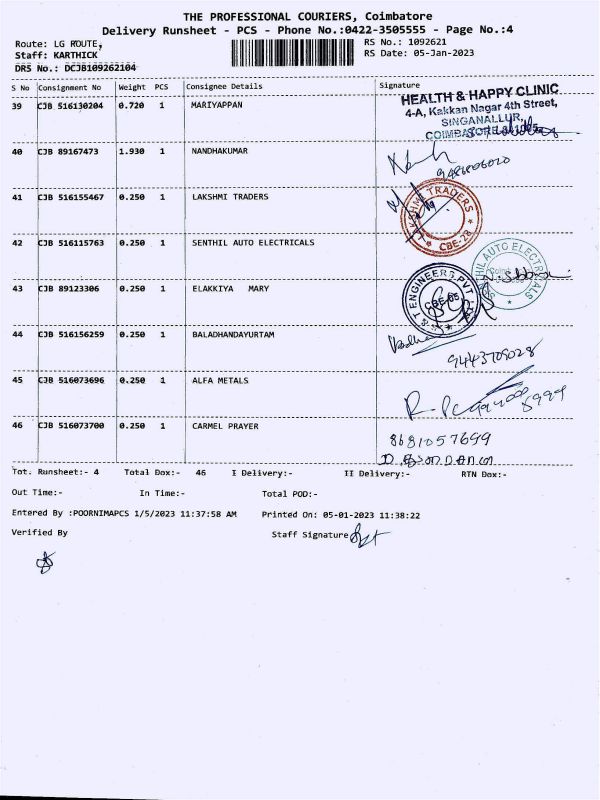 THE PROFESSIONAL COURIERS, Coimbatore
Delivery Runsheet - PCS - Phone No.:0422-3505555 - Page No.:4
Route: LG ROUTE, RS No.: 1092621
Staff: KARTHICK RS Date: 05-Jan-2023
DRS No.: DCJB109262104
S No Consignment No Weight PCS Consignee Details Signature
39 CJB 516130204 0.720 1 MARIYAPPAN
HEALTH & HAPPY CLINIC
4-A, Kakkan Nagar 4th Street,
SINGANALLUR,
COIMBATORE
40 CJB 89167473 1.930 1 NANDHAKUMAR
9486806020
41 CJB 516155467 0.250 1 LAKSHMI TRADERS
LAKSHMI TRADERS
CBE-28
42 CJB 516115763 0.250 1 SENTHIL AUTO ELECTRICALS
AUTO ELECTRICALS
43 CJB 89123306 0.250 1 ELAKKIYA MARY
& T ENGINEERS PVT
44 CJB 516156259 0.250 1 BALADHANDAYURTAM
9443709028
45 CJB 516073696 0.250 1 ALFA METALS
46 CJB 516073700 0.250 1 CARMEL PRAYER
8681057699
Tot. Runsheet:- 4 Total Dox:- 46 I Delivery:- II Delivery:- RTN Dox:-
Out Time:- In Time:- Total POD:-
Entered By :POORNIMAPCS 1/5/2023 11:37:58 AM Printed On: 05-01-2023 11:38:22
Verified By Staff Signature